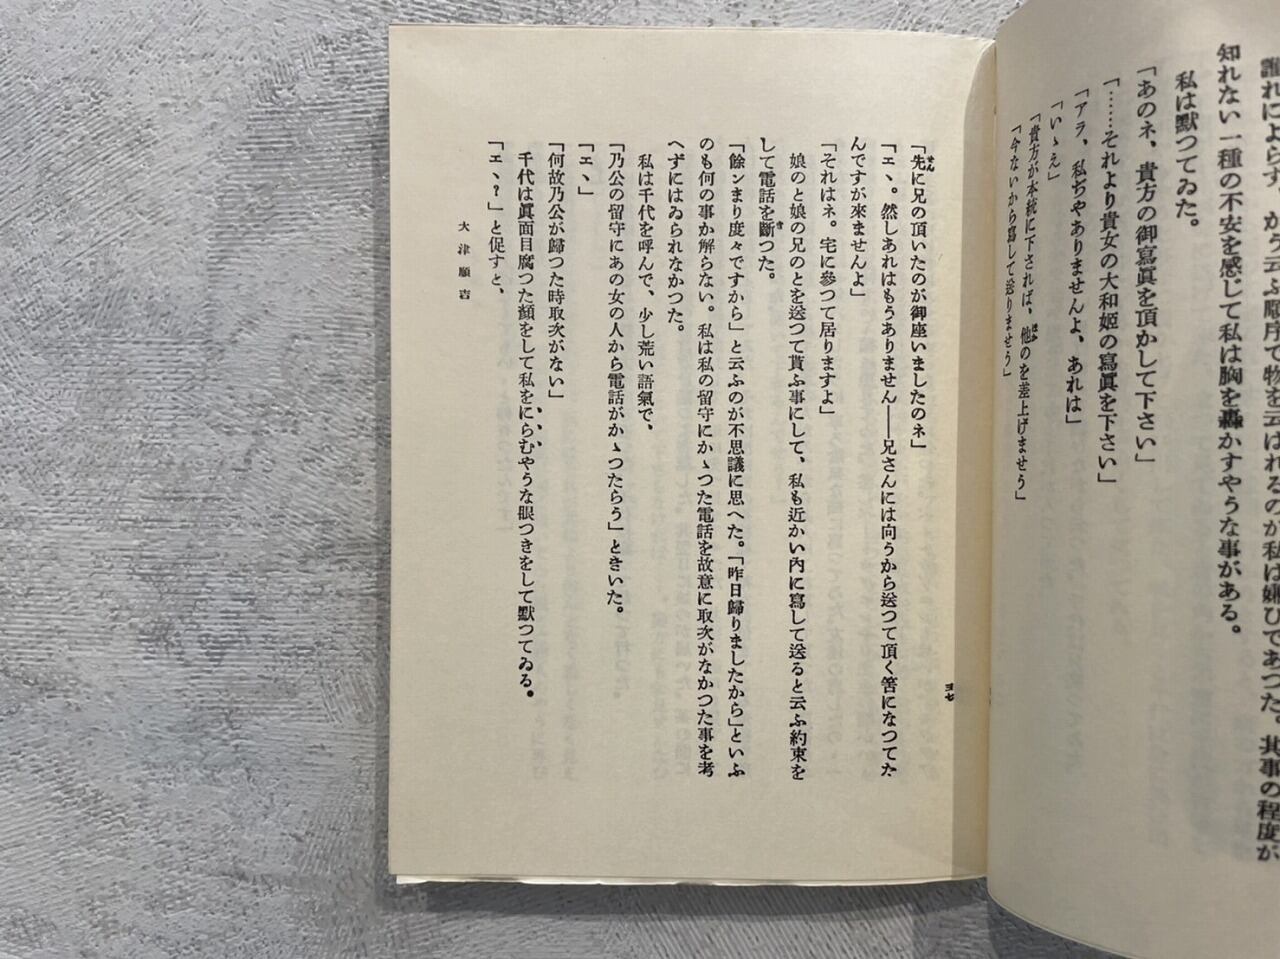 誰れによらず、かう云ふ風月で物を云はれるのが私は嫌ひであつた。其事の程度が
知れない一種の不安を感じて私は胸を轟かすやうな事がある。
私は默つてゐた。
「あのネ、貴方の御寫眞を頂かして下さい」
「……それより貴女の大和姫の寫眞を下さい」
「アラ、私ぢやありませんよ、あれは」
「いゝえ」
「貴方が本統に下されば、他のを差上げませう」
「今ないから寫して送りませう」
「先に兄の頂いたのが御座いましたのネ」
「エヽ。然しあれはもうありません──兄さんには向うから送つて頂く筈になつてた
んですが來ませんよ」
「それはネ。宅に參つて居りますよ」
娘のと娘の兄のとを送つて貰ふ事にして、私も近かい內に寫して送ると云ふ約束を
して電話を斷つた。
「餘ンまり度々ですから」と云ふのが不思議に思へた。「昨日歸りましたから」といふ
のも何の事か解らない。私は私の留守にかゝつた電話を故意に取次がなかつた事を考
へずにはゐられなかつた。
私は千代を呼んで、少し荒い語氣で、
「乃公の留守にあの女の人から電話がかゝつたらう」ときいた。
「エヽ」
「何故乃公が歸つた時取次がない」
千代は眞面目腐つた顏をして私をにらむやうな眼つきをして默つてゐる。
「エヽ？」と促すと、
大津順吉
三七